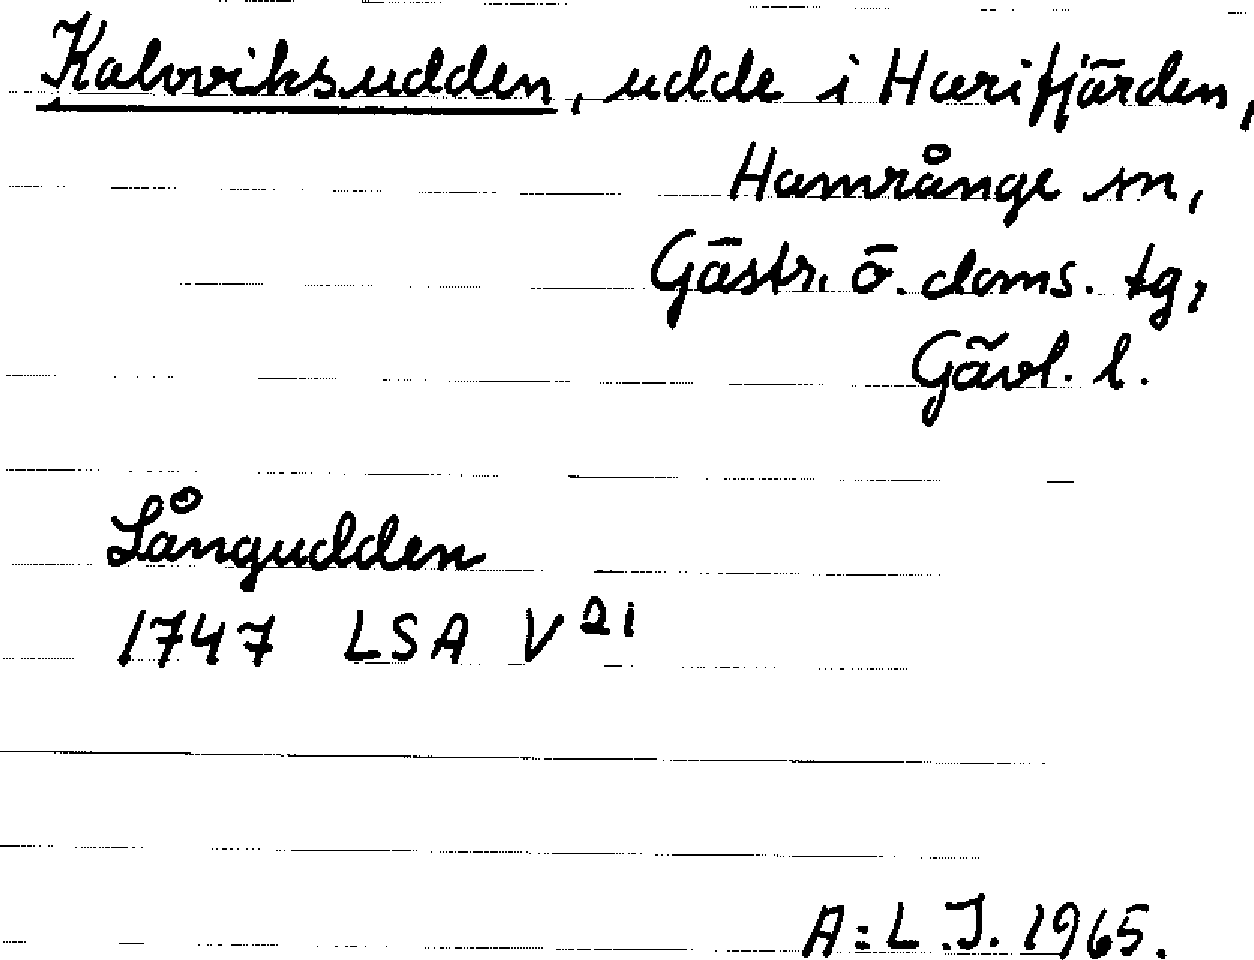 Kalvviksudden, udde i Harifjärden,
Hamrånge sn,
Gästr. ö. doms. tg,
Gävl. l.
Långudden
1747 LSA V 21
A:L.J. 1965.